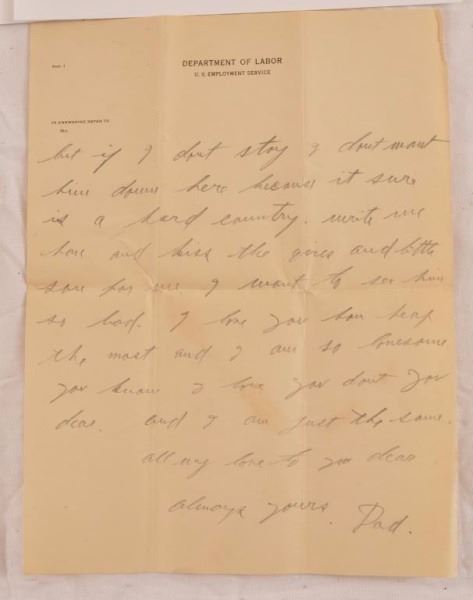 DEPARTMENT OF LABOR
U. S. EMPLOYMENT SERVICE
IN ANSWERING REFER TO
No.
but if I dont stay I dont want
him down here because it sure
is a hard country. write me
hon and kiss the girls and little
son for me I want to see him
so bad. I love you hon heap
the most and I am so lonesome
you know I love you dont you
dear. and I am just the same.
all my love to you dear
always yours.
Dad.